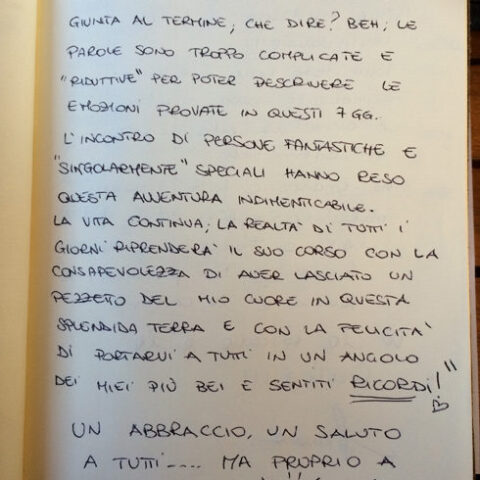 GIUNTA AL TERMINE, CHE DIRE? BEH, LE
PAROLE SONO TROPPO COMPLICATE E
"RIDUTTIVE" PER POTER DESCRIVERE LE
EMOZIONI PROVATE IN QUESTI 7 GG.
L'INCONTRO DI PERSONE FANTASTICHE E
"SINGOLARMENTE" SPECIALI HANNO RESO
QUESTA AVVENTURA INDIMENTICABILE.
LA VITA CONTINUA, LA REALTÀ DI TUTTI I
GIORNI RIPRENDERÀ IL SUO CORSO CON LA
CONSAPEVOLEZZA DI AVER LASCIATO UN
PEZZETO DEL MIO CUORE IN QUESTA
SPLENDIDA TERRA E CON LA FELICITÀ
DI PORTARVI A TUTTI IN UN ANGOLO
DEI MIEI PIÙ BEI E SENTITI RICORDI!"
UN ABBRACCIO, UN SALUTO
A TUTTI.... MA PROPRIO A